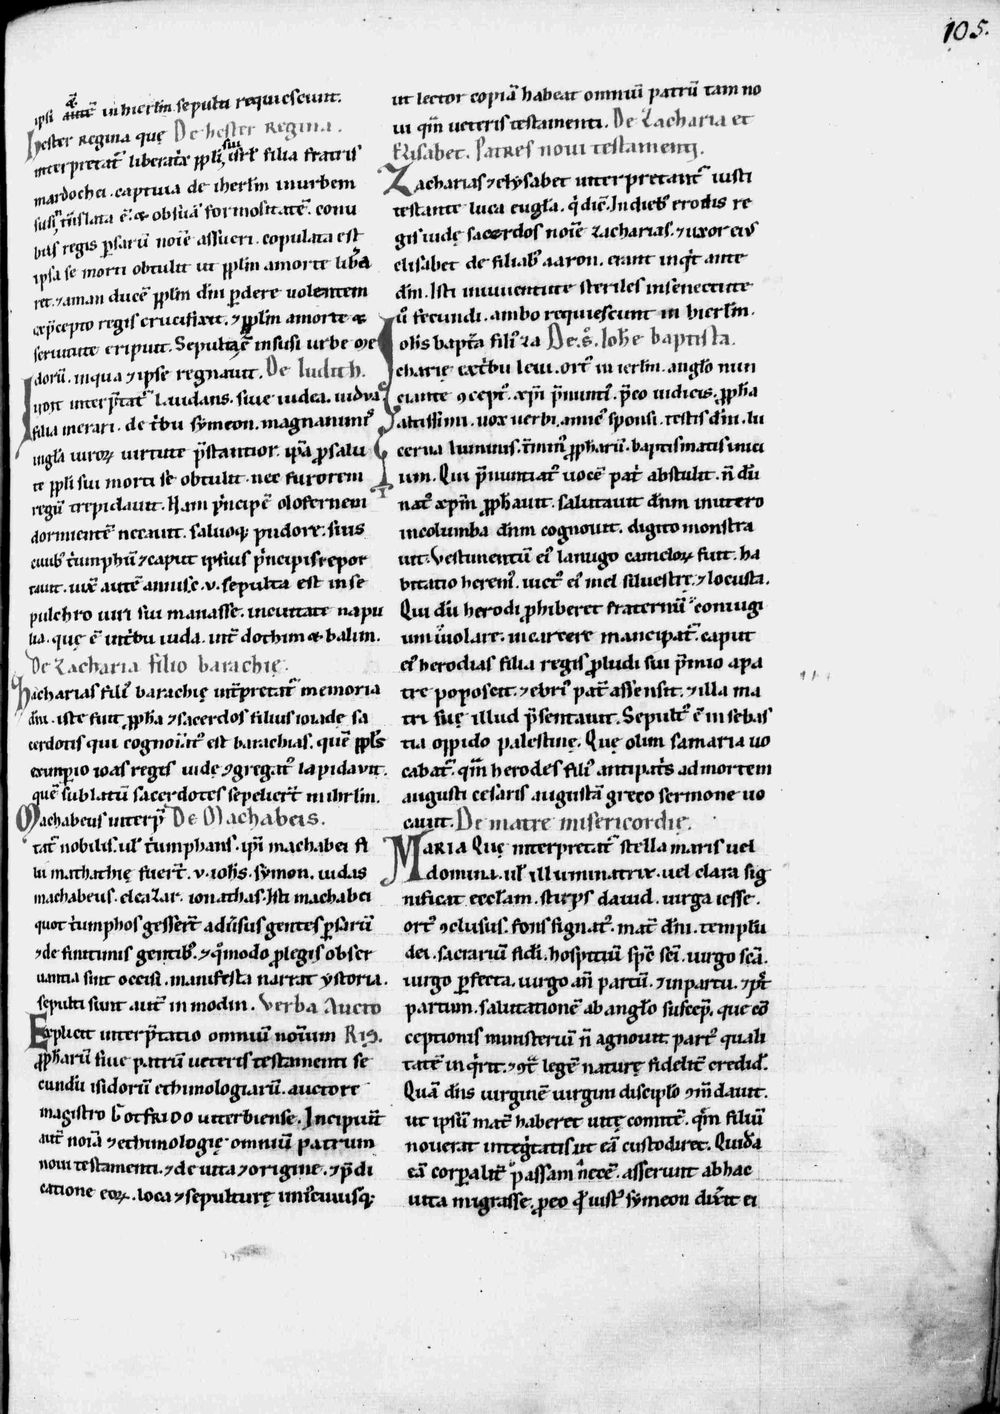 105.
ipsi aut̄ in hierl̄m sepulti requiescunt.
Hester regina quę De hester regina.
interpretat᷒ liberat᷒x ppl̄i sui isrl̄ filia fratris
mardochei. captiua de iherl̄m in urbem
susis t̄nslata ē. & ob suā formositatē. conu
biis regis p̄sarū noīe assueri. copulata est
ipsa se morti obtulit ut ppl̄m a morte libera
ret. ⁊ aman ducē ppl̄m dn̄i p̄dere uolentem
ex p̄cepto regis crucifixit. ⁊ ppl̄m a morte &
seruitute eripuit. Sepulta ē in susi urbe me
dorū. in qua ⁊ ipse regnauit. De Iudith.
Iudit interp̄tat᷒ laudans. siue iudea. uidua
filia merari. de t̄bu symeon. magnanim᷒
in gl̄a uiroꝝ uirtute p̄stantior. ip̄a p̄ salu
te ppl̄i sui morti se obtulit. nec furorem
regū trepidauit. Nam p̄ncipē olofernem
dormientē necauit. saluoq; pudore. suis
ciuib᷒ t̄umphū ⁊ caput ipsius p̄ncipis repor
tauit. uix̄ autē annis. c. v. sepulta est in se
pulchro uiri sui manasse. in ciuitate napu
lia. quę ē in t̄bu iuda. int̄ dothim & balim.
De Zacharia filio barachię.
Zacharias fili᷒ barachię int̄pretat᷒ memoria
dn̄i. iste fuit pp̄ha ⁊ sacerdos filius ioiadę sa
cerdotis qui cognoīat᷒ est barachias. quē ppl̄s
ex imp̄io ioas regis iudę ⁊ gregat᷒ lapidauit.
quē sublatū sacerdotes sepelier̄t in ihrl̄m.
Machabeus interp̄ De Machabeis.
tat᷒ nobilis. ul̄ t̄umphans. ip̄i machabei fi
lii mathathię fuer̄t. v. ioh̄s. symon. iudas
machabeus. eleazar. ionathas. Isti machabei
quot t̄umphos gesser̄t aduersus gentes p̄sarū
⁊ de finitimis gentib᷒. ⁊ q̄modo p̄ legis obser
uantia sint occisi. manifesta narrat ystoria.
sepulti sunt aut̄ in modin. Verba Aucto
Explicit interp̄tatio omniū noīum Ris.
pp̄harū siue patrū ueteris testamenti se
cundū isidorū ethimologiarū. auctore
magistro Gotfrido uiterbiense. Incipiunt
aut̄ noīa ⁊ ethimologię omniū patrum
noui testamenti. ⁊ de uita ⁊ origine. ⁊ p̄di
catione eoꝝ. loca ⁊ sepulturę uni᷒cuiusq;
ut lector copiā habeat omniū patrū tam no
ui qm̄ ueteris testamenti. De Zacharia et
Elisabet. Patres noui testamenti.
Zacharias ⁊ elysabet interpretant᷒ iusti
testante luca eugl̄a. q̄ diē. In dieb᷒ erodis re
gis iudę sacerdos noīe zacharias. ⁊ uxor eius
elisabet de filiab᷒ aaron. erant inq̄t ante
dm̄. Isti in iuuentute steriles in senectute
u᷒ fecundi. ambo requiescunt in hierl̄m.
Ioh̄is bapt̄a fili᷒ za De. s̄. Ioh̄e baptista.
charie ex t̄bu leui. ort᷒ in ierl̄m. angl̄o nun
ciante ꝯcept᷒. xp̄i p̄nunti᷒. p̄co iudicis. pp̄ha
altissimi. uox uerbi. amic᷒ sponsi. testis dn̄i. lu
cerna luminis. t̄min᷒ pp̄harū. baptismatis inici
um. Qui p̄nuntiat᷒ uocē pat̄ abstulit. n̄ dū
nat᷒ xp̄m pp̄hauit. salutauit dn̄m in utero
in columba dn̄m cognouit. digito monstra
uit. Vestimentū ei᷒ lanugo cameloꝝ fuit. ha
bitatio herem᷒. uict᷒ ei᷒ mel siluestre. ⁊ locusta.
Qui dū herodi p̄hiberet fraternū coniugi
um uiolare. in carcere mancipat᷒. caput
ei᷒ herodias filia regis p̄ ludi sui p̄mio a pa
tre poposcit. ⁊ ebri᷒ pat̄ assensit. ⁊ illa ma
tri suę illud p̄sentauit. Sepult᷒ ē in sebas
tia oppido palestinę. Quę olim samaria uo
cabat᷒. qm̄ herodes fili᷒ antipat̄s ad mortem
augusti cesaris augustā greco sermone uo
cauit. De matre misericordię.
Maria Quę interpretat᷒ stella maris uel
domina. ul̄ illuminatrix. uel clara sig
nificat eccl̄am. stirps dauid. uirga iesse.
ort᷒ ꝯclusus. fons signat᷒. mat᷒ dn̄i. templū
dei. sacrariū fidi. hospitiū sp̄c sc̄i. uirgo sc̄a.
uirgo p̄fecta. uirgo an̄ partū. ⁊ in partu. ⁊ p̄t
partum. salutationē ab angl̄o suscep̄. que cō
ceptionis ministeriū n̄ agnouit. part᷒ quali
tatē inq̄rit. ⁊ ꝯt᷒ legē naturę fidelit̄ credid᷒.
Quā dn̄s uirginē uirgini disciplo ꝯm̄dauit.
ut ipsū mat᷒ haberet uitę comitē. qm̄ filiū
nouerat inteḡtatis ut eā custodiret. Quidā
eā corp̄alit᷒ p̄ passam necē. asserunt ab hac
uita migrasse. p̄ eo q̄ iust᷒ symeon dix̄it ei